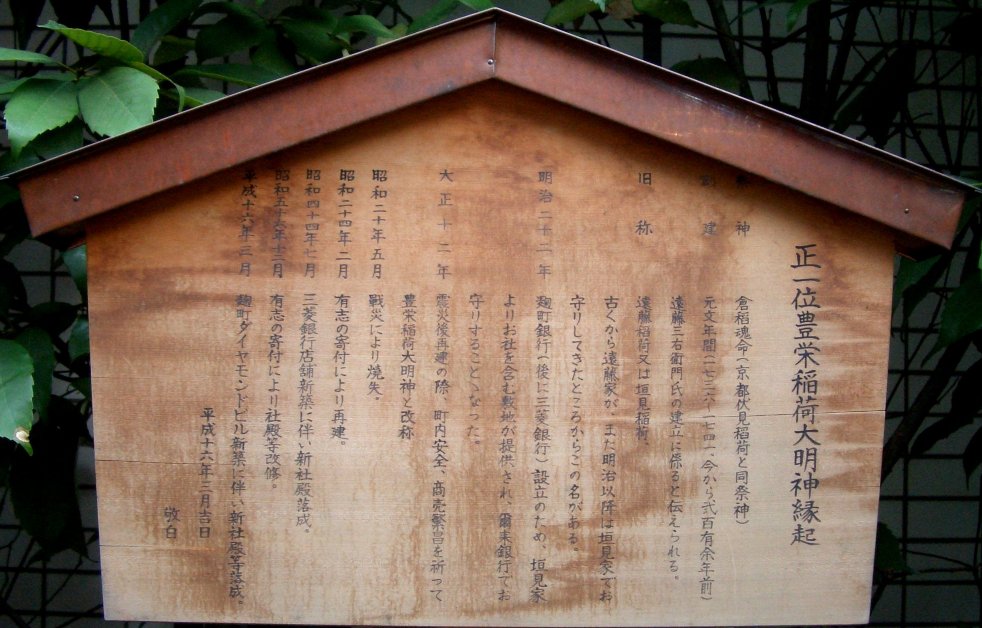 正一位豊栄稲荷大明神縁起
神 倉稲魂命(京都伏見稲荷と同祭神)
建 元文年間(一七三六〜一七四一、今から弐百有余年前)
遠藤三右衛門氏の建立に係ると伝えられる。
旧称 遠藤稲荷又は垣見稲荷、
古くから遠藤家が、また明治以降は垣見家でお
守りしてきたところからこの名がある。
明治二十二年 麹町銀行(後に三菱銀行)設立のため、垣見家
よりお社を含む敷地が提供され、爾来銀行でお
守りすることゝなった。
大正十二年 震災後再建の際、町内安全、商売繁昌を祈って
豊栄稲荷大明神と改称
昭和二十年五月 戦災により焼失。
昭和二十四年二月 有志の寄付により再建。
昭和四十四年七月 三菱銀行店舗新築に伴い新社殿落成。
昭和五十六年十二月 有志の寄付により社殿等改修。
平成十六年三月 麹町ダイヤモンドビル新築に伴い新社殿等落成。
平成十六年三月吉日
敬白